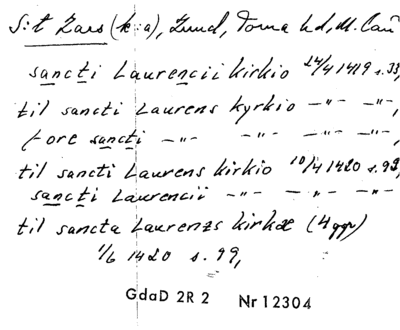 S:t Lars (k:a), Lund, Torna hd, M.
sancti Laurencii kirkio 24/4 1419 s. 33,
til sancti Laurens kyrkio -"- -"-,
fore sancti -"- -"- -"-,
til sancti Laurens kirkio 10/4 1420 s. 92,
sancti Laurencii -"- -"- -"-
til sancta Laurenzs kirkæ (4 ggr)
1/6 1420 s. 99,
GdaD 2R 2 Nr 12304